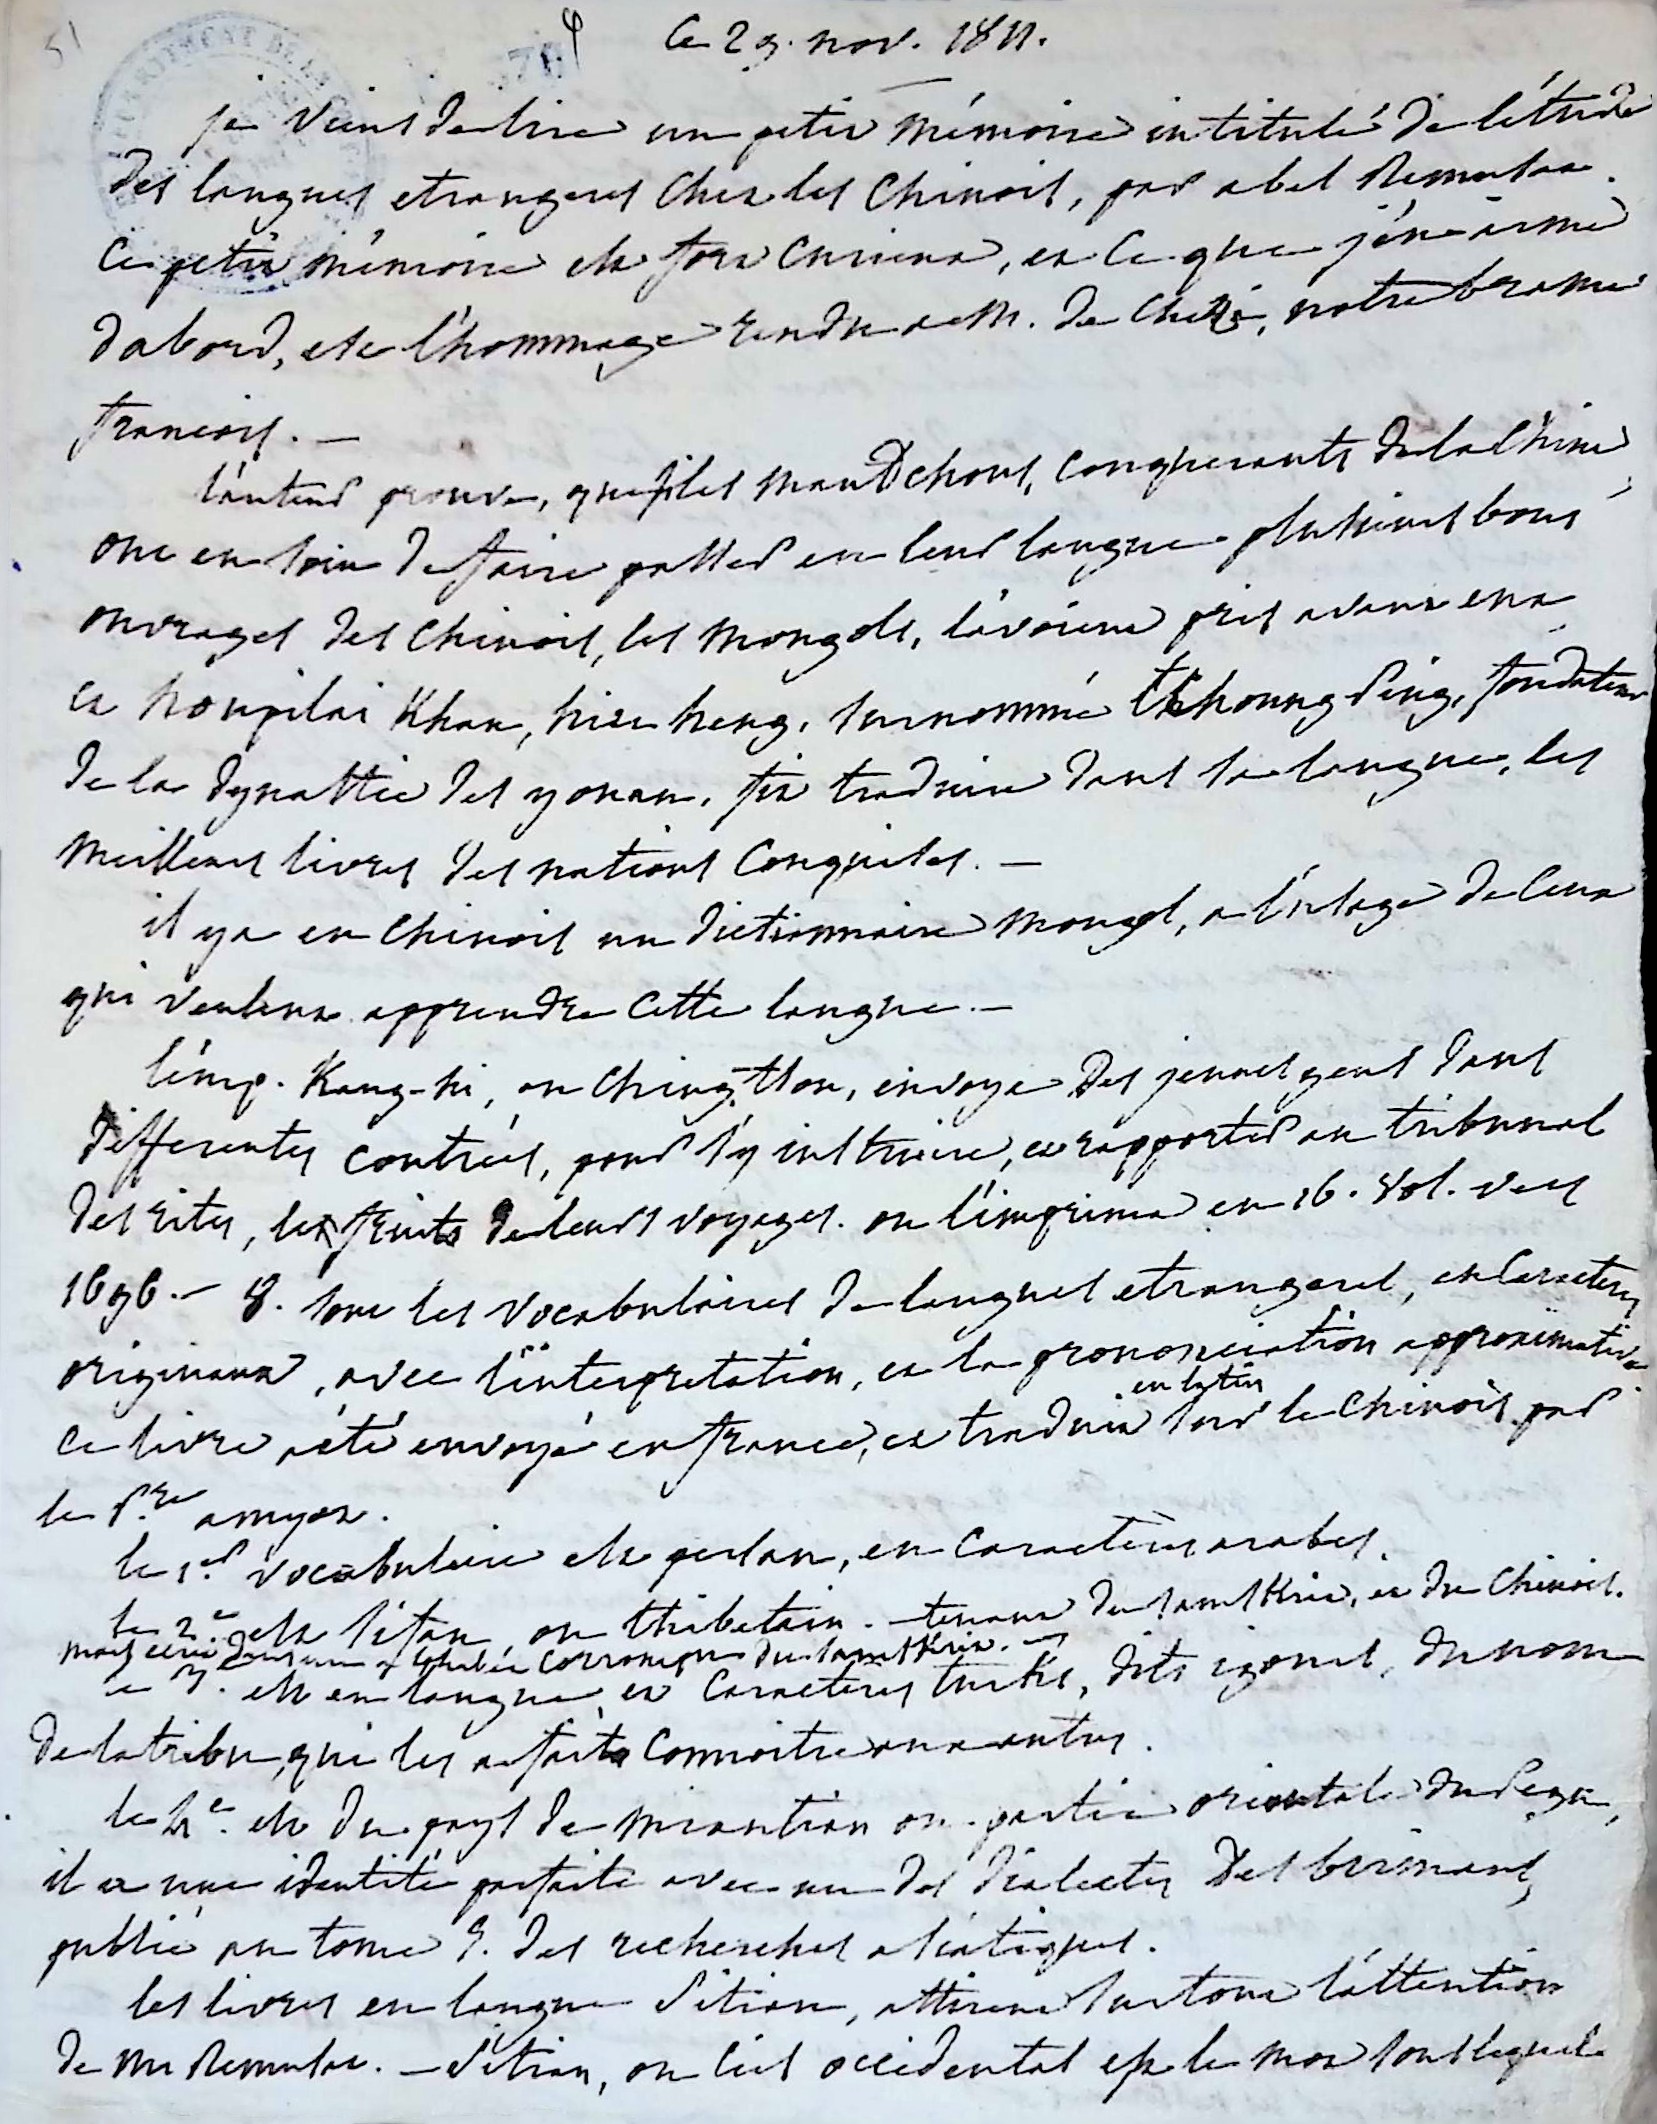 51
ce 29. nov. 1811.
je viens de lire un petit mémoire intitulé de l'étude
des langues etrangeres chez les chinois, par abel Remusat.
ce petit mémoire est fort curieux, et ce que j'en aime
d'abord, est l'hommage rendu a M. de Chezi, notre brame
francois. —
l'auteur prouve, que si les mandchous, conquerants de la Chine,
ont eu soin de faire passer en leur langue plusieurs bons
ouvrages des chinois, les mongols, l'avoient fait avant eux
et houpilai Khan, surnommé fondateur
de la dynastie des youan, fit traduire dans sa langue, les
meilleurs livres des nations conquises. —
il y a en chinois un dictionnaire mongol, a l'usage de ceux
qui veulent apprendre cette langue. —
l'emp. Kang-hi, ou Ching-tsou, envoya des jeunes gens dans
differentes contrées, pour s'y instruire, et rapporter au tribunal
des rites, les fruits de leurs voyages. on l'imprima en 16. vol. vers
1696. — 8. sont les vocabulaires de langues etrangeres, en caracteres
originaux, avec l'interpretation, et la prononciation approximative.
ce livre a été envoyé en france, et traduit en latin sur le chinois par
le P.re amyot.
le 1.er vocabulaire est persan, en caracteres arabes.
le 2.e est si fan, ou thibetain. — tenant du samskrit, et du chinois.
mais ecrit dans un alphabet corrompu du samskrit. —
le 3. est en langue et caracteres turks, dits igours, du nom
de la tribu, qui les a fait connoitre aux autres.
le 4.e est du pays de miantian ou partie orientale du Pegu,
il a une identité parfaite avec un des dialectes des birmans,
publié au tome 5. des recherches asiatiques.
les livres en langue Si tian, attirent surtout l'attention
de mr Remusat. — Si tian, ou ciel occidental est le mot sous lequel